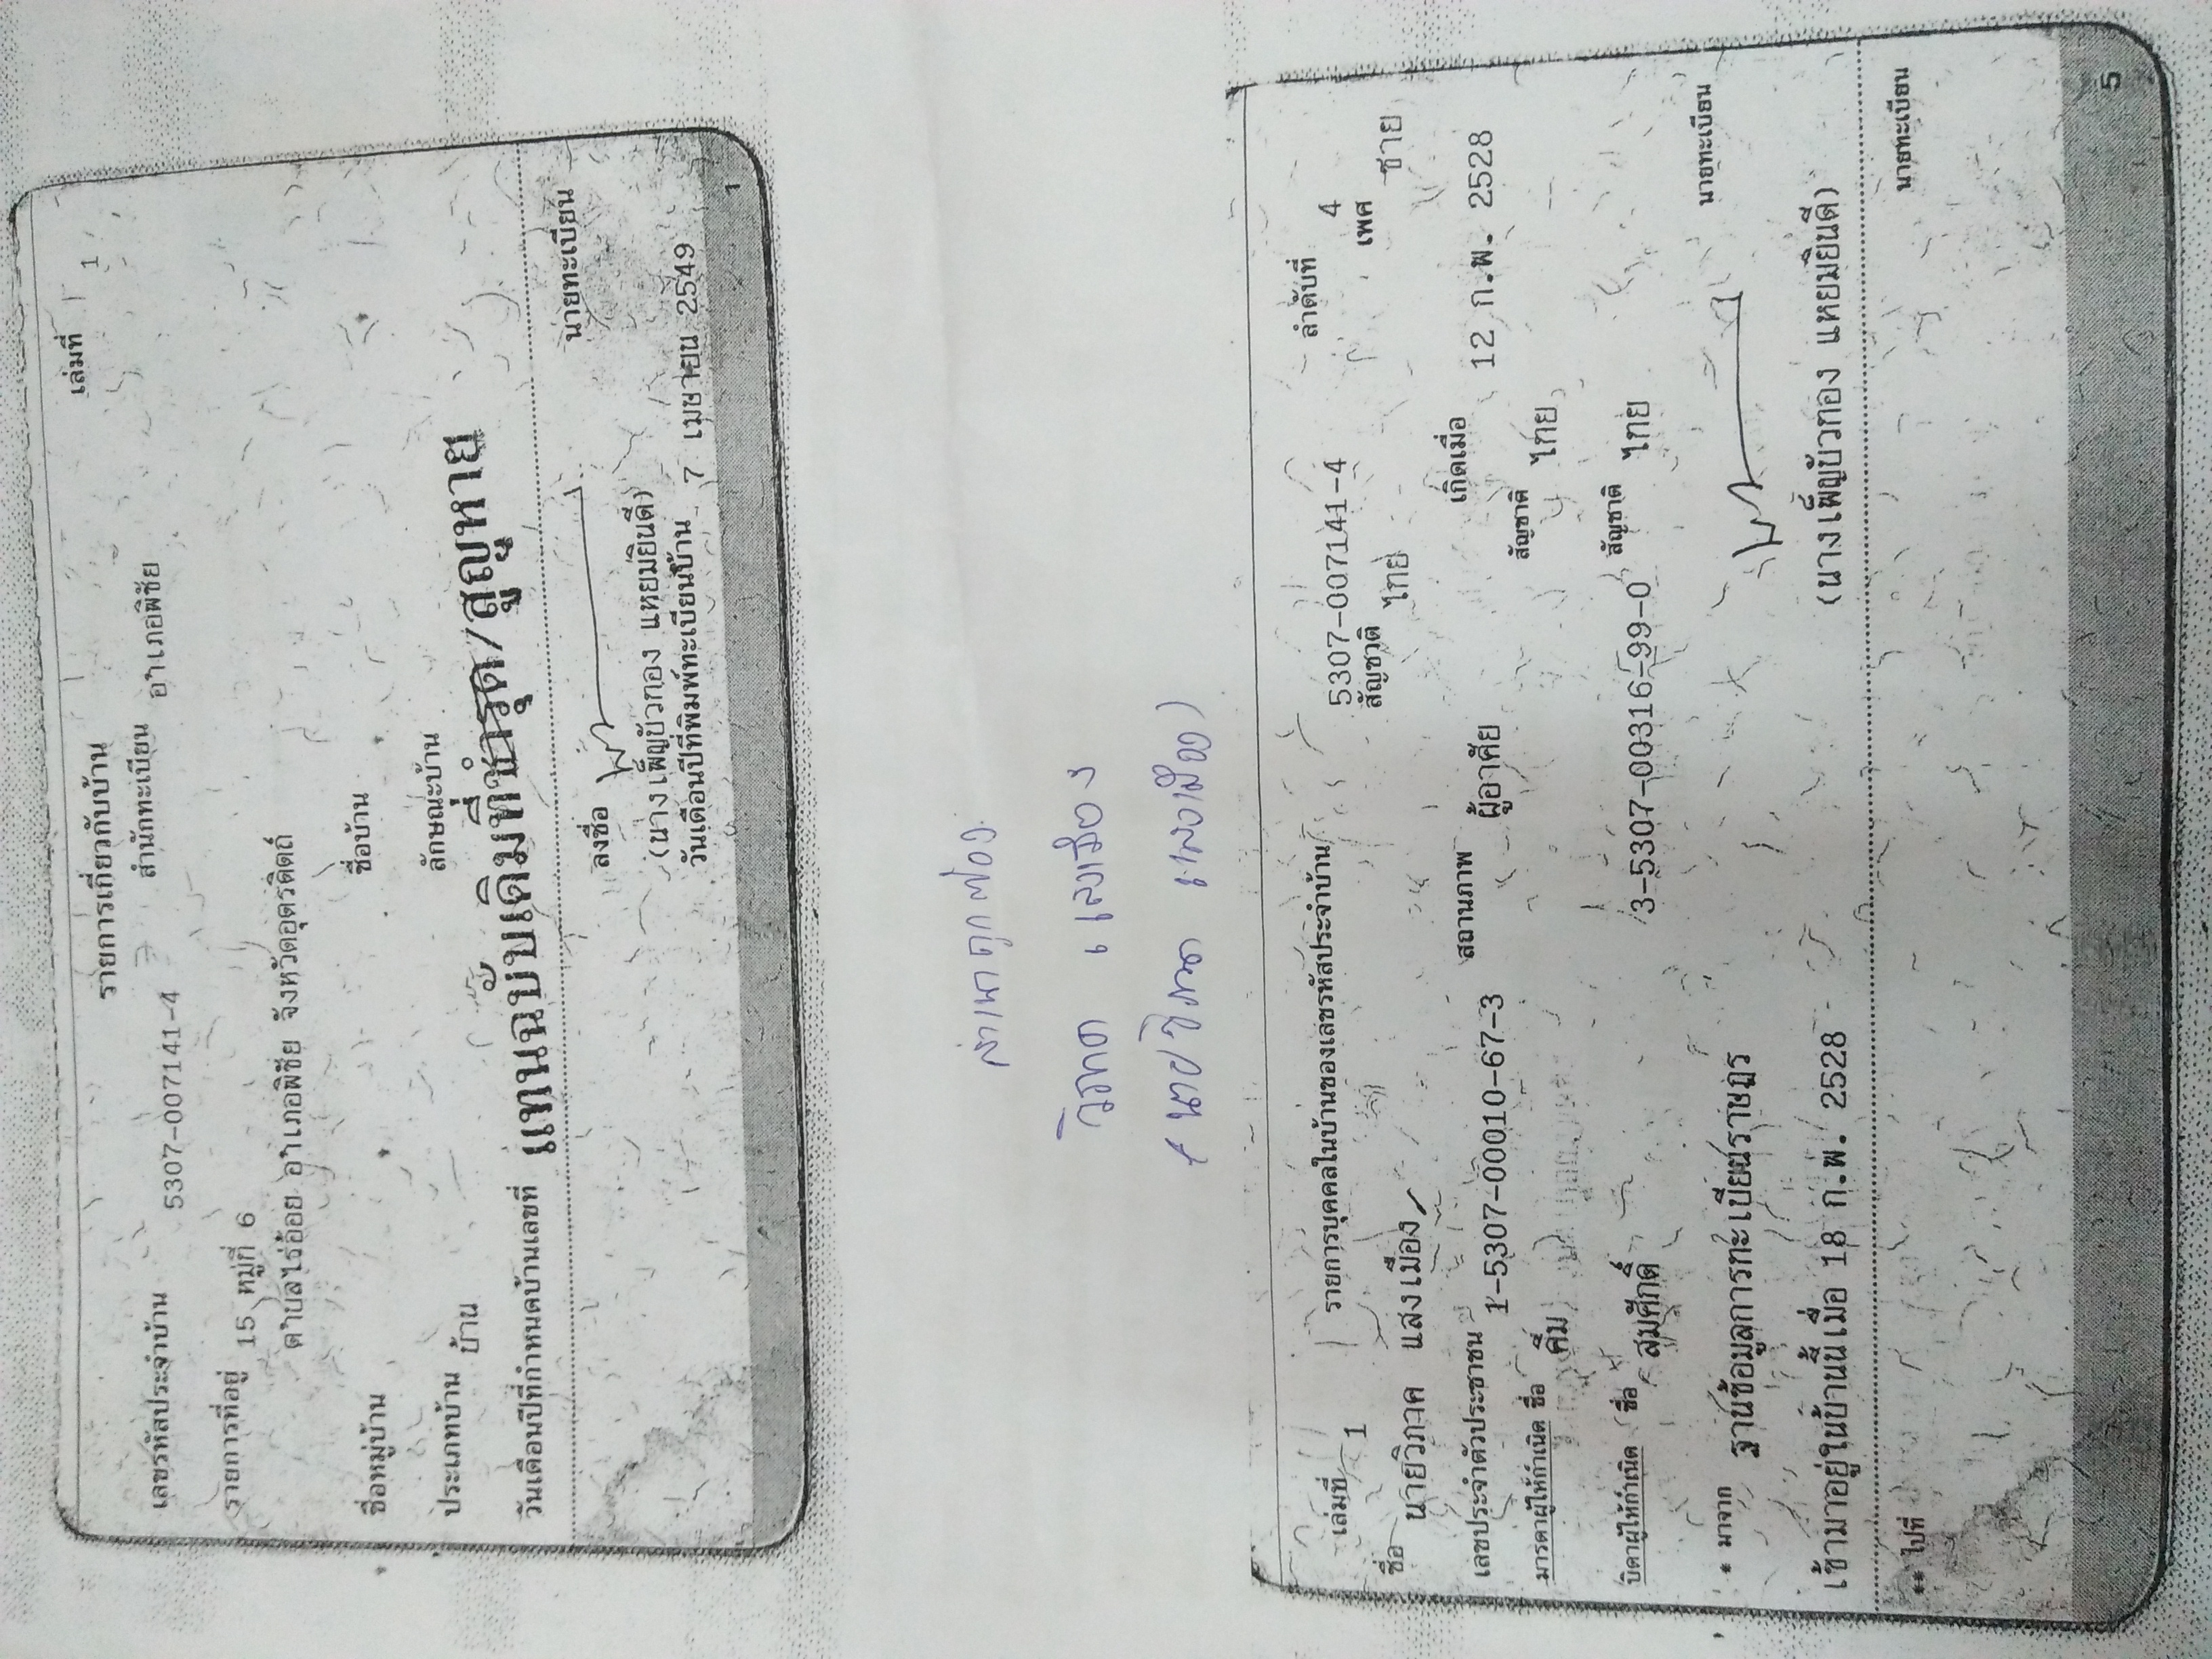 เล่มที่ 1
รายการเกี่ยวกับบ้าน
เลขรหัสประจำบ้าน 5307-007141-4 สำนักทะเบียน อำเภอพิชัย
รายการที่อยู่ 15 หมู่ที่ 6
ตำบลไร่อ้อย อำเภอพิชัย จังหวัดอุตรดิตถ์
ชื่อหมู่บ้าน ชื่อบ้าน
ประเภทบ้าน บ้าน ลักษณะบ้าน
วันเดือนปีที่กำหนดบ้านเลขที่ แทนฉบับเดิมที่ชำรุด/สูญหาย
ลงชื่อ นายทะเบียน
(นางเพ็ญบัวทอง แหยมยินดี)
วันเดือนปีที่พิมพ์ทะเบียนบ้าน 7 เมษายน 2549
1
สำเนาถูกต้อง
วิภาค แสงเมือง
(นายวิภาค แสงเมือง)
เล่มที่ 1 รายการบุคคลในบ้านของเลขรหัสประจำบ้าน 5307-007141-4 ลำดับที่ 4
ชื่อ นายวิภาค แสงเมือง สัญชาติ ไทย เพศ ชาย
เลขประจำตัวประชาชน 1-5307-00010-67-3 สถานภาพ ผู้อาศัย เกิดเมื่อ 12 ก.พ. 2528
มารดาผู้ให้กำเนิด ชื่อ คิ่ม สัญชาติ ไทย
บิดาผู้ให้กำเนิด ชื่อ สมศักดิ์ 3-5307-00316-99-0 สัญชาติ ไทย
* มาจาก ฐานข้อมูลการทะเบียนราษฎร นายทะเบียน
เข้ามาอยู่ในบ้านนี้เมื่อ 18 ก.พ. 2528 (นางเพ็ญบัวทอง แหยมยินดี)
** ไปที่ นายทะเบียน
5